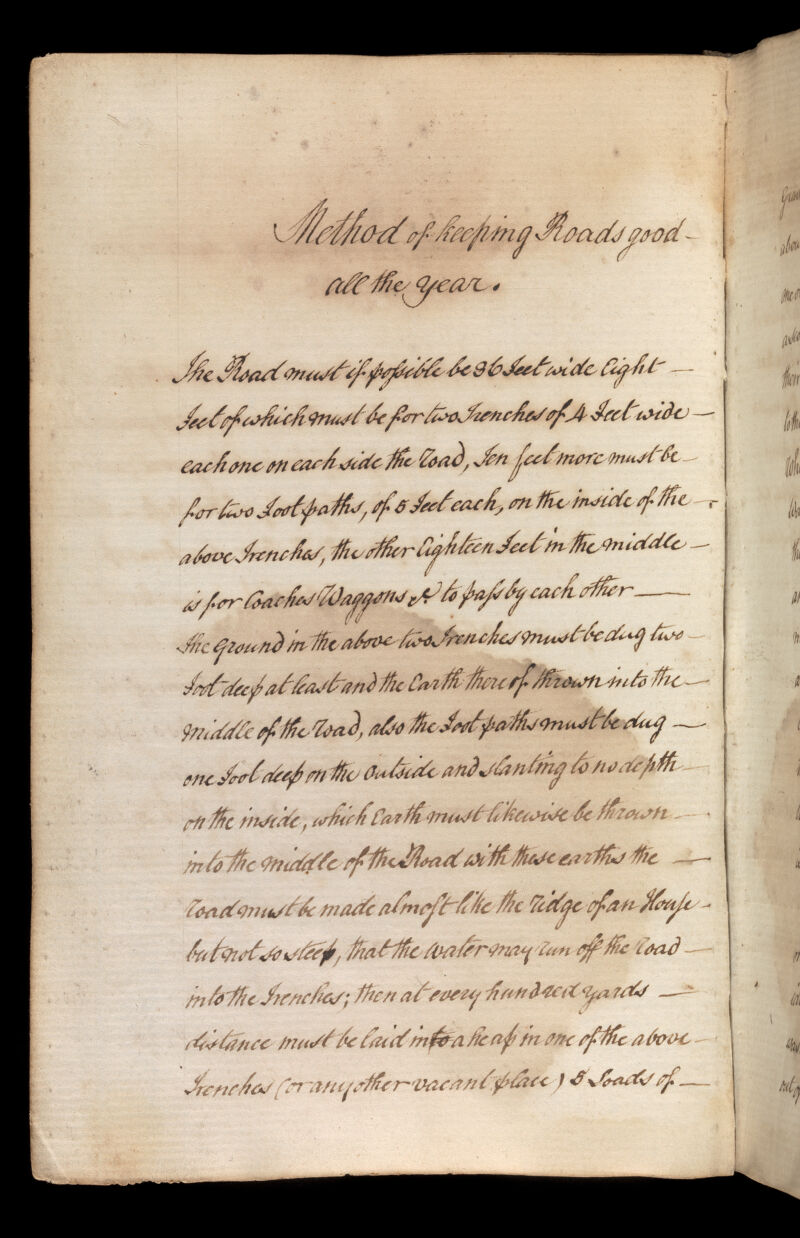 Method of keeping Roads good
all the year.
The Road must if possible be 36 Feet wide Eight
Feet of which must be for two Trenches of 4 Feet wide
each one on each side the Road, Ten feet more must be
for two Foot paths, of 5 Feet each, on the inside of the
above Trenches, the other Eighteen Feet in the middle
is for Coaches Waggons &c. to pass by each other
The Ground in the above two Trenches must be dug two
Foot deep at least and the Earth thereof thrown into the
middle of the Road, also the Foot paths must be dug
one Foot deep on the outside and slanting to no depth
on the inside, which Earth must likewise be thrown
into the middle of the Road with these earths the
Road must be made almost like the ridge of an House
but not so steep, that the water may run off the Road
into the Trenches; then at every hundred yards
distance must be laid into a heap in one of the above
Trenches (or any other vacant place) 5 Loads of